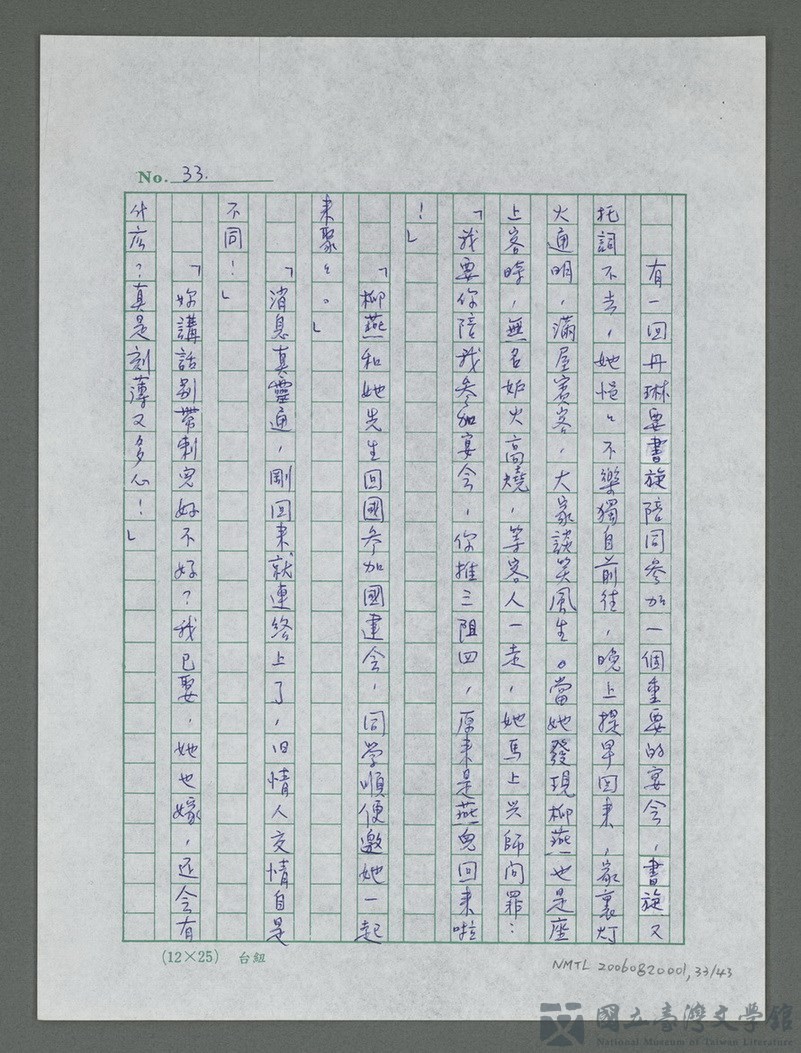 No. 33.
有一回丹琳要書旋陪同參加一個重要的宴会，書旋又
托詞不去，她悒々不樂獨自前往，晚上提早回来，家裏灯
火通明，滿屋賓客，大家談笑風生。當她發現柳燕也是座
上客時，無名妒火高燒，等客人一走，她馬上兴師问罪：
「我要你陪我參加宴会，你推三阻四，原来是燕兒回来啦
！」
「柳燕和她先生回國參加國建会，同学順便邀她一起
来聚々。」
「消息真靈通，剛回来就連絡上了，旧情人交情自是
不同！」
「妳講話别帶刺兒好不好？我已娶，她也嫁，还会有
什広？真是刻薄又多心！」
(12×25) 台紐
NMTL 20060820001, 33/43
國立臺灣文學館
National Museum of Taiwan Literature